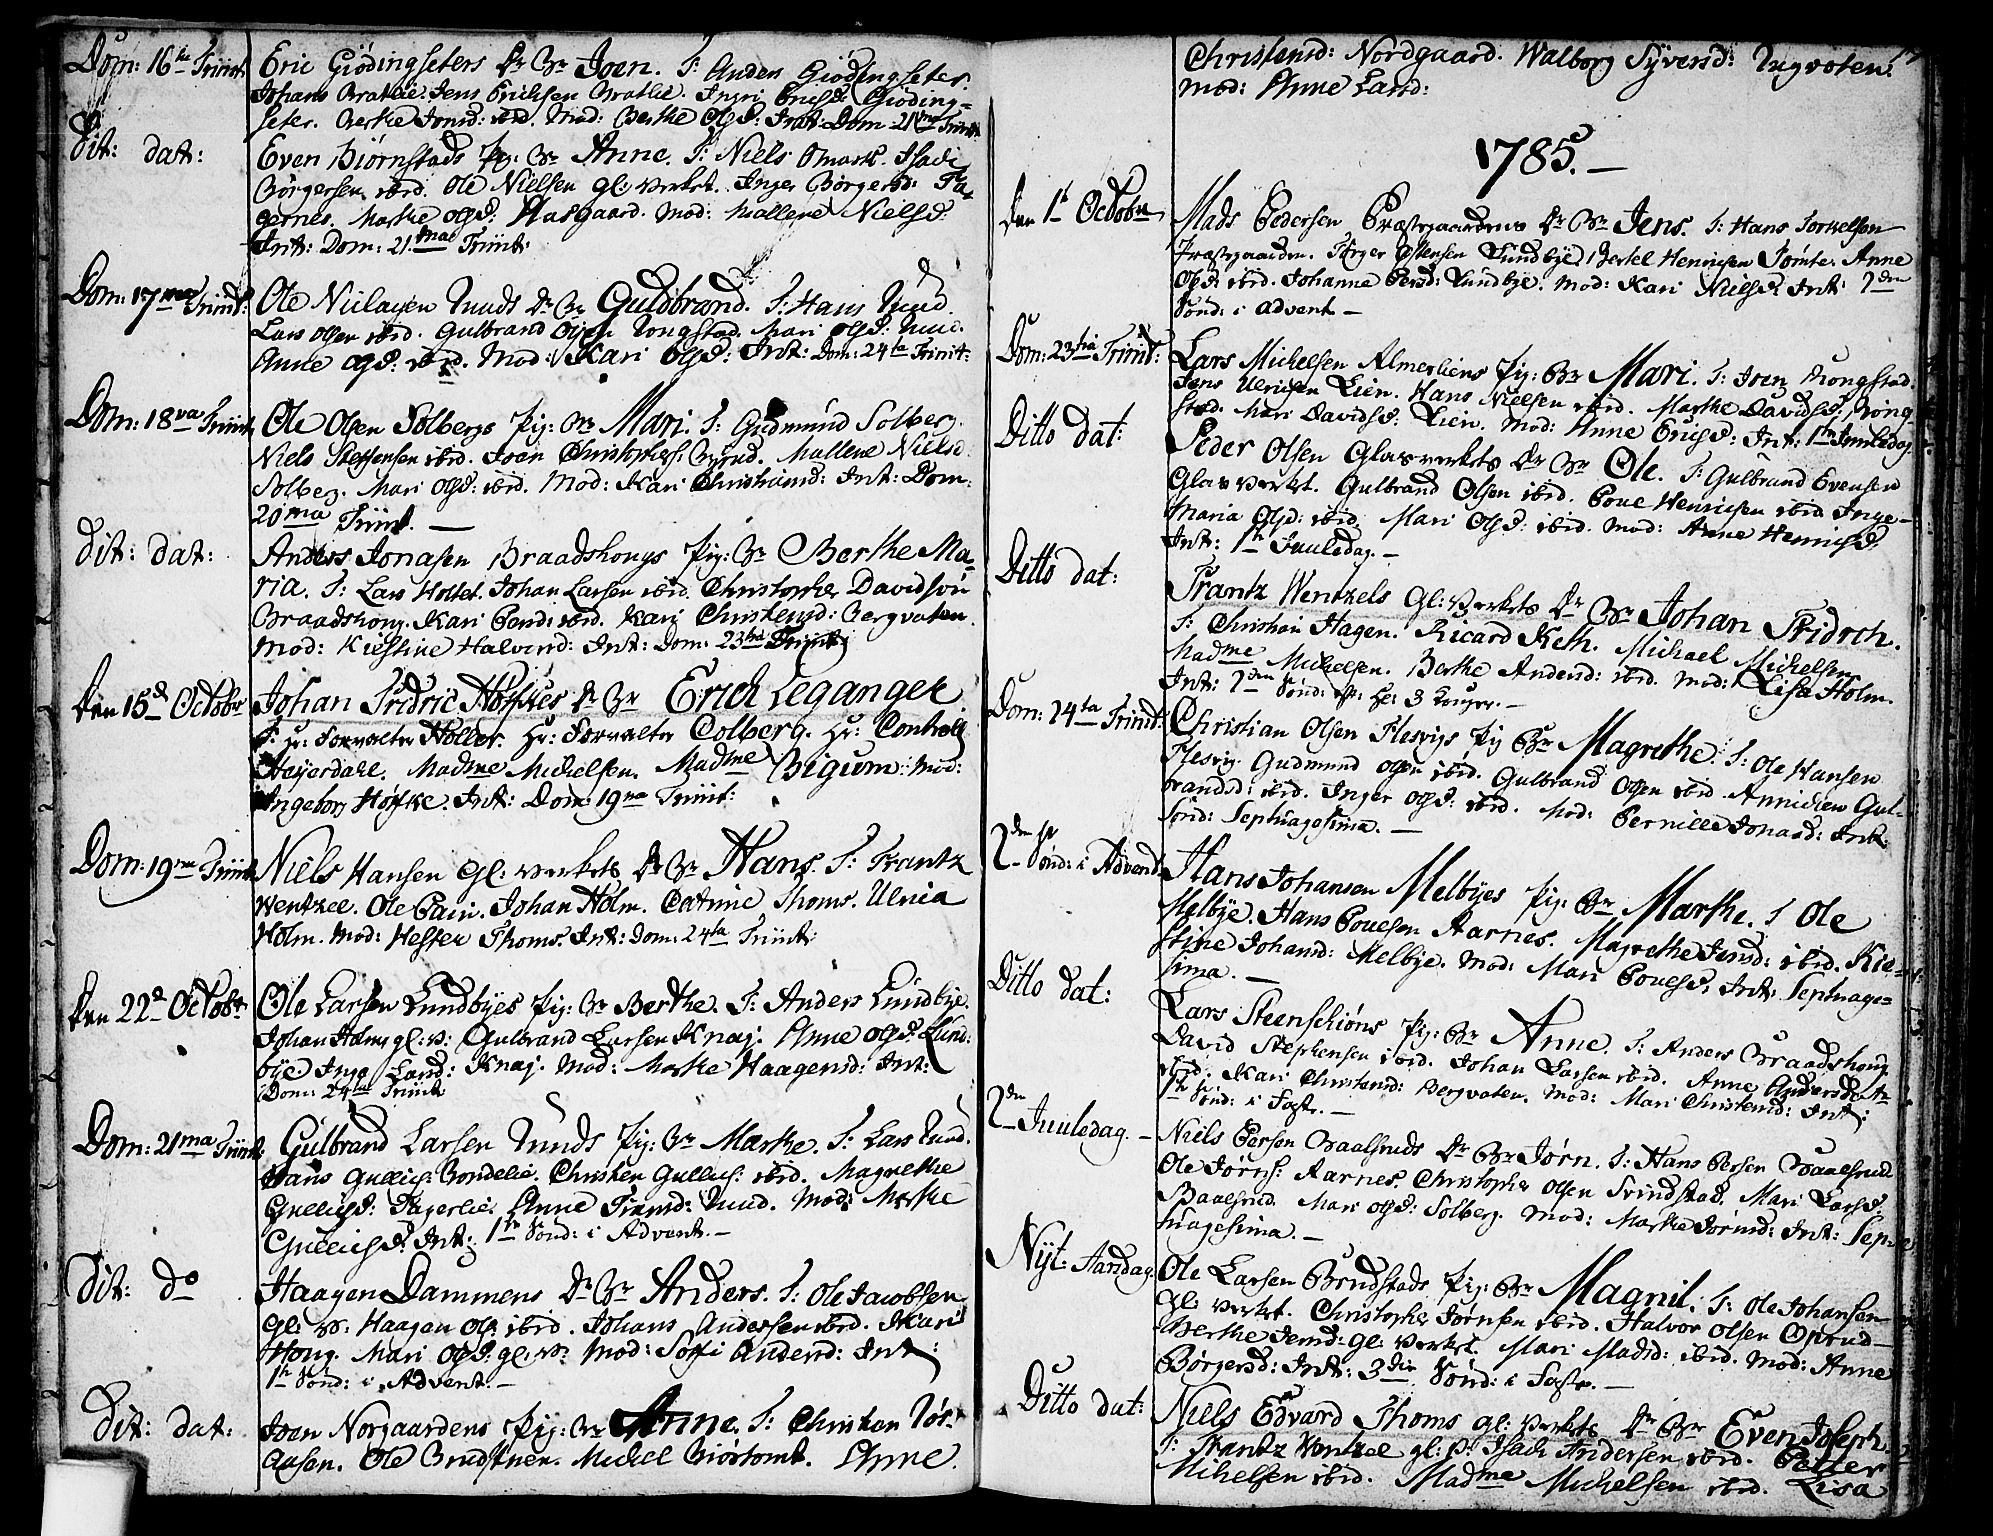 Dom: 16de Trinit:
Eric Giödingseters Dr Br Joen. T: Anden Giödingseter.
Johans Bratlie. Jens Erichsen Bratlie. Ingri Erisd: Giöding-
seter. Berthe Jonsd: ibid. Mod: Berthe Olsd: Int: Dom: 21ma Trinit:
Dit: dat:
Even Biörnstads Pig: Br Anne. T: Niels Isach
Börgersen ibid. Ole Nielsen gl: verket. Inger Börgersd: Fa-
gernes. Marthe Olsd: Aasgaard. Mod: Mallene Nielsd:
Int: Dom: 21.ma Trinit:
Dom: 17ma Trinit:
Ole Niclayen Ruuds Dr Br Guldbrand. T: Hans Ruud.
Lars Olsen ibid. Gulbrand Olsen Rongstad. Mari Olsd: Ruud.
Anne Olsd: ibid. Mod: Kari Olsd: Int: Dom: 24ta Trinit:
Dom: 18va Trinit:
Ole Olsen Solbergs Pig: Br Mari. T: Gudmund Solberg.
Niels Steffensen ibid. Joen Christophers: Byrud. Mallene Nielsd:
Solberg. Mari Olsd: ibid. Mod: Kari Christiansd: Int: Dom:
20ma Trinit. —
Dit: dat:
Anders Jonasen Braadshougs Pig: Br Berthe Ma-
ria. T: Lars Holtet. Johan Larsen ibid. Christopher Davidsön
Braadshoug. Kari ibid. Kari Christensd: Bergvaten.
Mod: Kiestine Halvorsd: Int: Dom: 23tia Trinit:
Den 15d Octobr
Johan Fridric Höpfkes Dr Br Erich Leganger
T: Hr: Forvalter Holler. Hr: Forvalter Colberg. Hr: Controll
Heyerdahl. Madme Michelsen. Madme Bigum. Mod:
Ingeborg Höpfke. Int: Dom: 19na Trinit:
Dom: 19na Trinit:
Niels Hansen Gl: verkets Dr Br Hans. T: Frantz
Wentzel. Ole Johan Holm. Catrine Thoms. Ulrica
Holm. Mod: Hester Thoms. Int: Dom: 24ta Trinit:
Den 22d Octobr
Ole Larsen Lundbyes Pig: Br Berthe. T: Anders Lundbye.
Johan Holms gl: v: Gulbrand Larsen Knaj. Anne Olsd: Lund-
bye. Inga Larsd: Knaj. Mod: Marthe Haagensd: Int:
Dom: 24ta Trinit
Dom: 21ma Trinit:
Gulbrand Larsen Ruuds Pig: Br Marthe. T: Lars Ruud.
Hans Gullics: Bondelie. Christen Gullics: ibid. Magrethe
Gullicsd: Fagerlie. Anne Ruud. Mod: Marthe
Gullicsd: Int: 1te Sönd: i Advent. —
Dit: do
Haagen Dammens Dr Br Anders. T: Ole Jacobsen
gl: v: Haagen Ols: ibid. Johans Andersen ibid. Kari
Houg. Mari Olsd: gl: v: Mod: Sofi Andersd: Int:
1te Sönd: i Advent. —
Dit: dat:
Joen Norgaardens Pig: Br Anne. T: Christian Tös-
aasen. Ole Brudstuen. Michel Biörtomt. Anne
Christensd: Nordgaard. Walborg Syversd: Rugvoten.
Mod: Anne Larsd:
1785. —
Den 1d Octobr
Mads Pedersen Præstegaardens Dr Br Jens. T: Hans Torkelsen
Præstegaarden. Törger Ellensen Lundbye. Bertel Henrichsen Tömte. Anne
Olsd: ibid. Johanne Persd: Lundbye. Mod: Kari Nielsd: Int: 2den
Sönd: i Advent —
Dom: 23tia Trinit:
Lars Michelsen Almerliens Pig: Br Mari. T: Joen Rongstad.
Jens Ulrichsen Lien. Hans Nielsen ibid. Marthe Davidsd: Rong-
stad. Mari Davidsd: Lien. Mod: Anne Ericsd: Int: 1te Juuledag.
Ditto dat:
Peder Olsen Glasverkets Dr Br Ole. T: Gulbrand Evensen
Glasverket. Gulbrand Olsen ibid. Poue Henrichsen ibid. Inge-
Maria Olsd: ibid. Mari Olsd: ibid. Mod: Anne Henricsd:
Int: 1te Juuledag. —
Ditto dat:
Frantz Wentzels Gl: verkets Dr Br Johan Fridrch.
T: Christian Hagen. Ricard Keth. Michael Michelsen.
Madme Michelsen. Berthe Andersd: ibid. Mod: Lisa Holm.
Int: 2den Sönd: eft: He: 3 Konger. —
Dom: 24ta Trinit:
Christian Olsen Flesvigs Pig Br Magrethe. T: Ole Hansen
Flesvig. Gudmund Olsen ibid. Gulbrand Olsen ibid. Annichen Gul-
brandsd: ibid. Inger Olsd: ibid. Mod: Pernille Jonasd: Int:
Sönd: Septuagesima. —
2den Sönd: i Advend
Hans Johansen Melbyes Pig: Br Marthe. T Ole
Melbye. Hans Pouesen Aarnes. Magrethe Jensd: ibid. Kie-
stine Johansd: Melbye. Mod: Mari Pouesd: Int: Septuage-
sima. —
Ditto dat:
Lars Steenschiöns Pig: Br Anne. T: Anders Braadshoug.
David Stephensen ibid. Johan Larsen ibid. Anne Andersd:
ibid. Kari Christensd: Bergvaten. Mod: Mari Christensd: Int:
1te Sönd: i Faste. —
2den Juuledag. —
Niels Persen Baalsruds Dr Br Jörn. T: Hans Persen Baalsrud
Ole Jörns: Aarnes. Christopher Olsen Svindstad. Mari Larsd:
Baalsrud. Mari Olsd: Solberg. Mod: Marthe Jörnsd: Int: Sept-
tuagesima. —
Nyt: Aarsdag.
Ole Larsen Brudstads Pig: Br Magnil. T: Ole Johansen
Gl: verket. Christopher Jörnsen ibid. Halvor Olsen Opsrud—
Berthe Jensd: Gl: verket. Mari Madsd: ibid. Mod: Anne
Börgersd: Int: 3die Sönd: i Faste. —
Ditto dat:
Niels Edvard Thoms gl: verkets Dr Br Even Joseph.
T: Frantz Ventzel gl: v: Isach Andersen ibid. Petter
Mihelsen ibid. Madme Michelsen ibid. Lisa